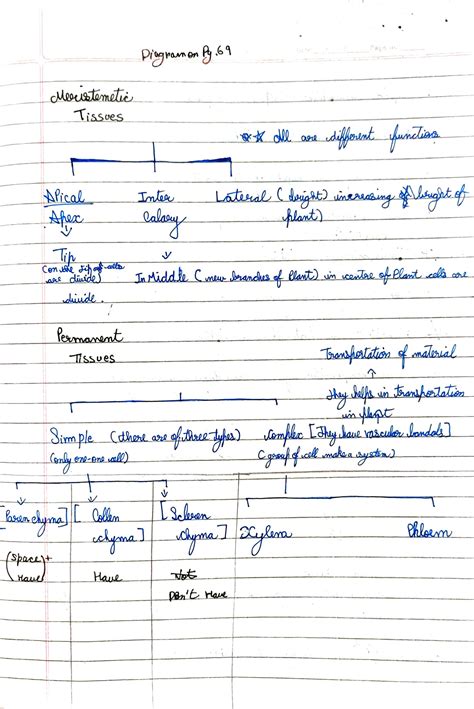 Diagram on Pg.69
Meristemetic
Tissues
** All are different functions
Apical Inter Lateral (height) increasing of height of
Apex Calary plant)
Tip
(on the tip of cells are divide) In Middle (new branches of Plant) in centre of Plant cells are
divide.
Permanent
Tissues
Transportation of material
They helps in transportation
in plant
Simple (there are of three types) Complex [They have vascular bundols]
(only one-one cell) (group of cell make a system)
[Paren chyma] [Collen [Scleren
chyma] chyma] Xylem Phloem
(Space)+
Have Have Not
Don't Have